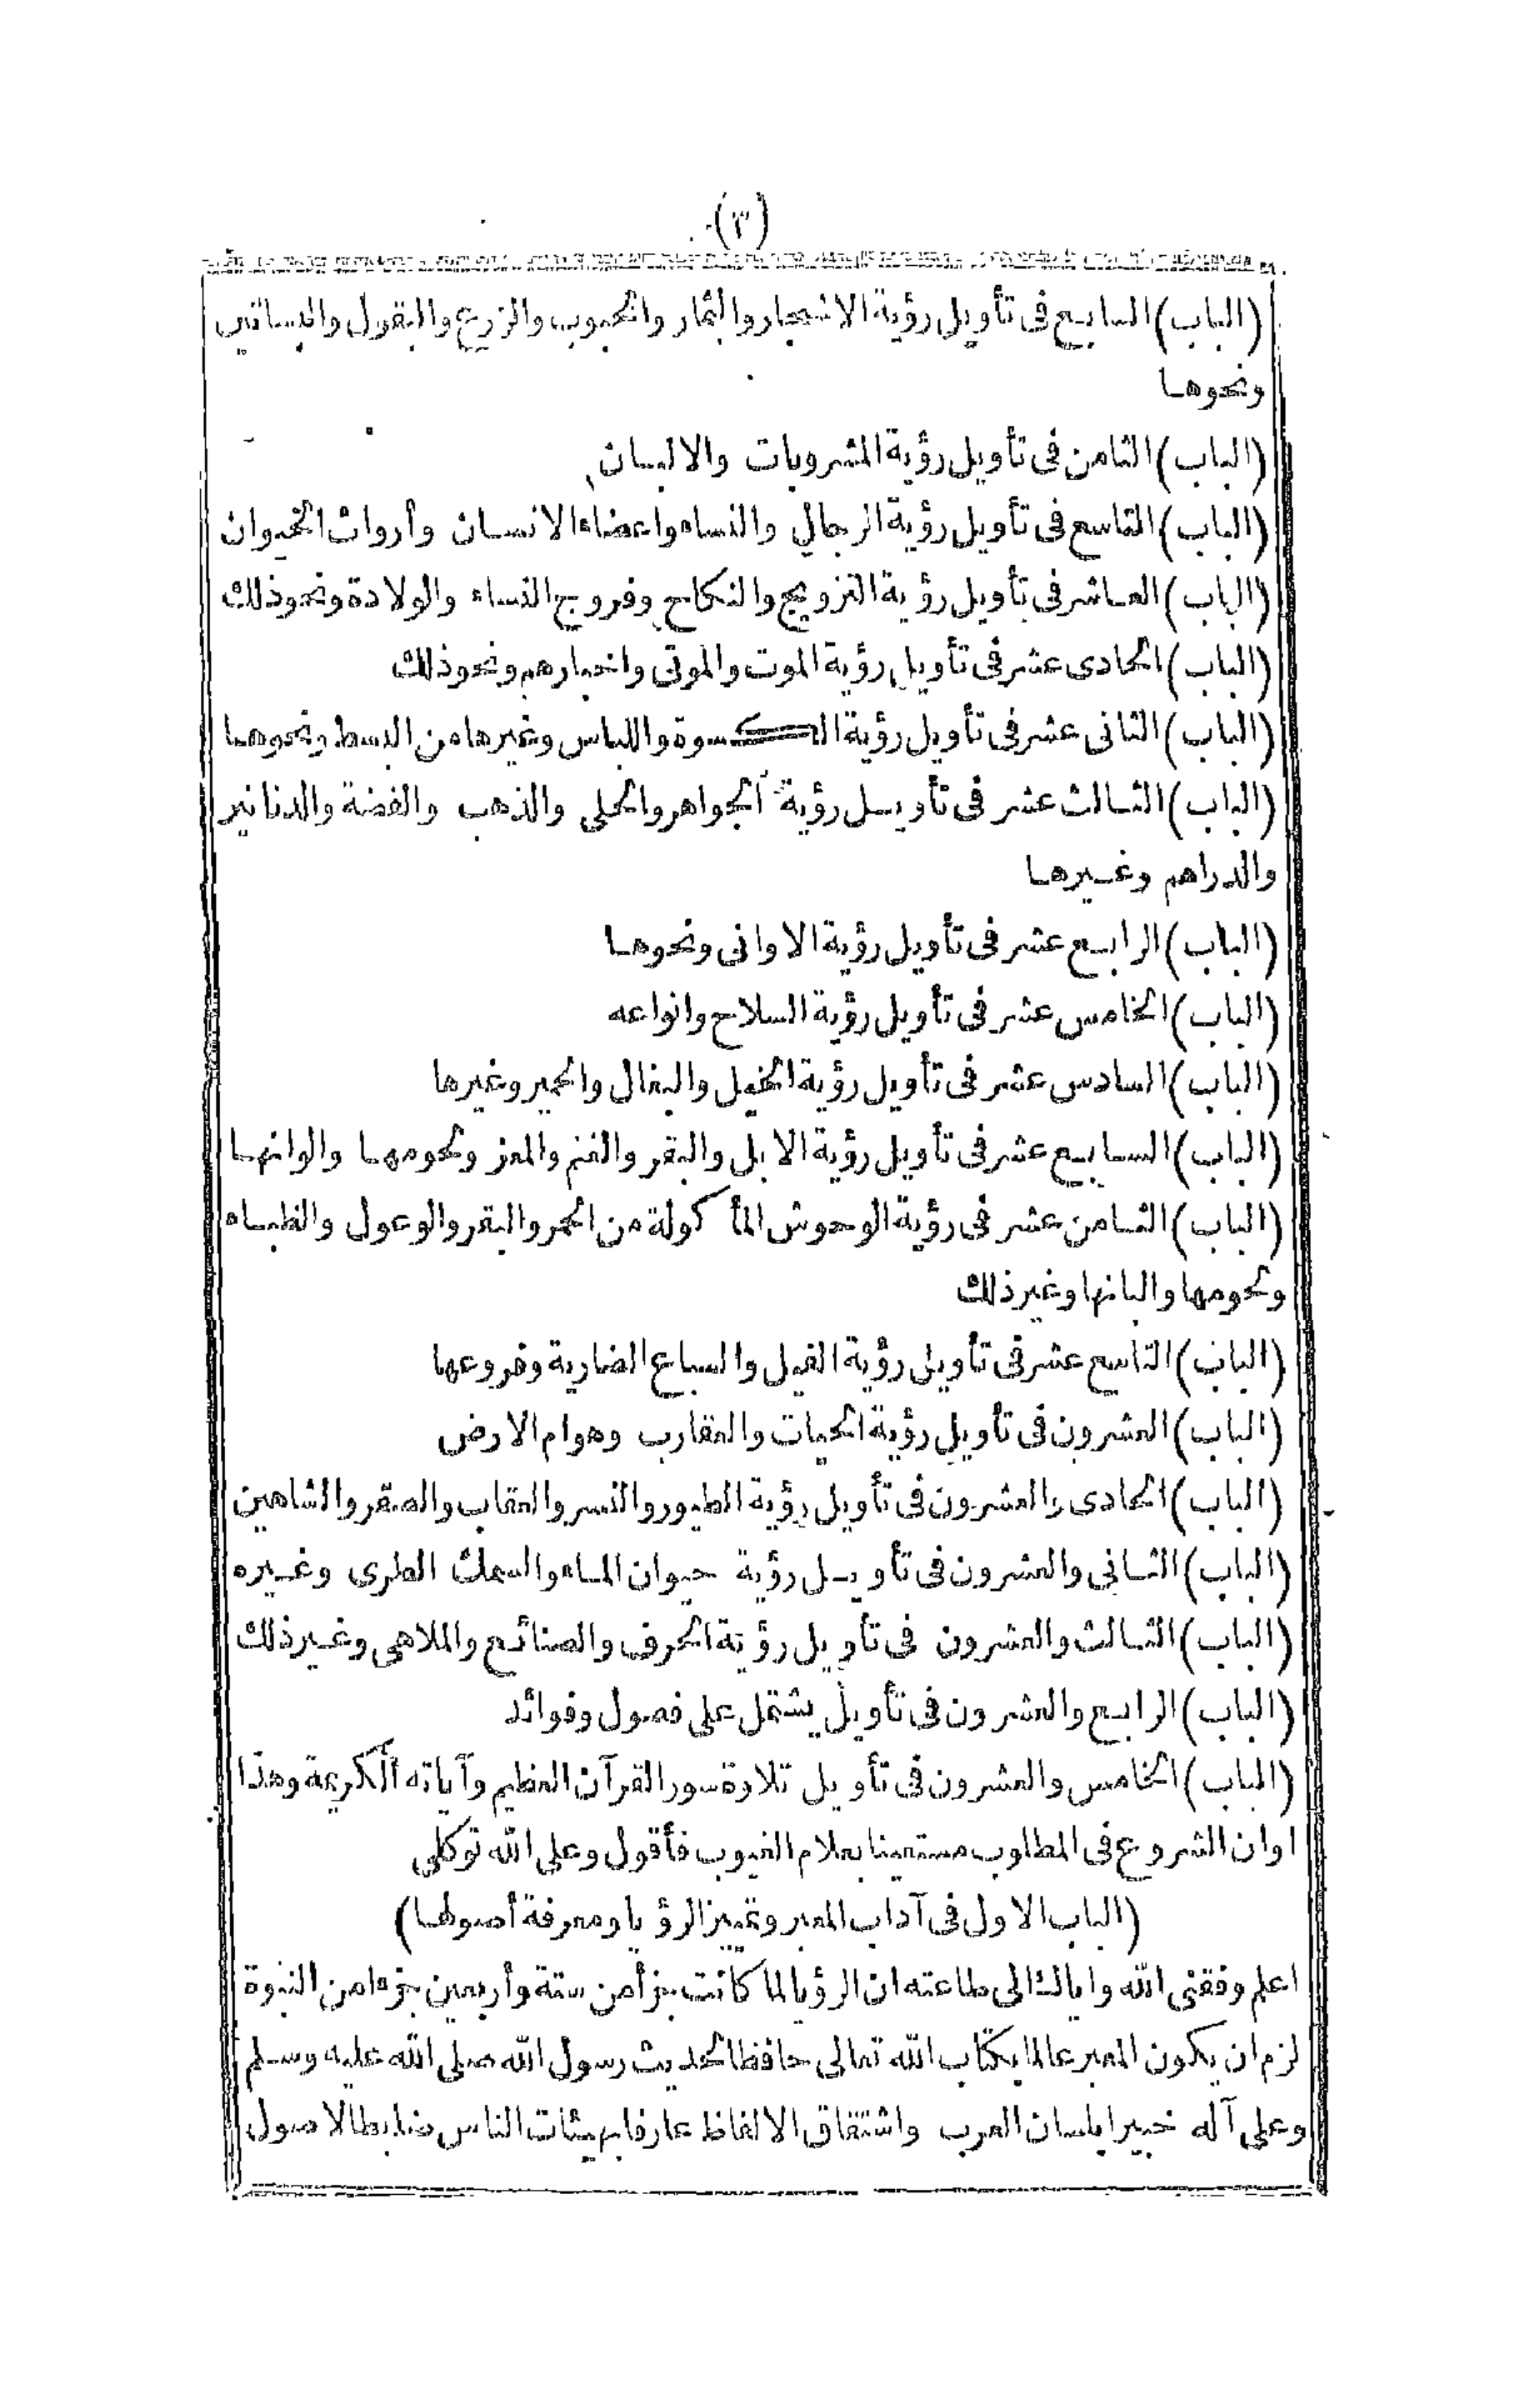 (٣)
(الباب) السابع فى تأويل رؤية الاشجار والثمار والحبوب والزرع والبقول والبساتين
ونحوها
(الباب) الثامن فى تأويل رؤية المشروبات والالبان
(الباب) التاسع فى تأويل رؤية الرجال والنساء واعضاء الانسان وأرواث الحيوان
(الباب) العاشر فى تأويل رؤية التزويج والنكاح وفروج النساء والولادة ونحو ذلك
(الباب) الحادى عشر فى تأويل رؤية الموت والموتى واخبارهم ونحو ذلك
(الباب) الثانى عشر فى تأويل رؤية الكسوة واللباس وغيرها من البسط ونحوها
(الباب) الثالث عشر فى تأويل رؤية الجواهر والحلى والذهب والفضة والدنانير
والدراهم وغيرها
(الباب) الرابع عشر فى تأويل رؤية الاوانى ونحوها
(الباب) الخامس عشر فى تأويل رؤية السلاح وانواعه
(الباب) السادس عشر فى تأويل رؤية الخيل والبغال والحمير وغيرها
(الباب) السابع عشر فى تأويل رؤية الابل والبقر والغنم والمعز ولحومها والوانها
(الباب) الثامن عشر فى رؤية الوحوش المأكولة من الحمر والبقر والوعول والظباء
ولحومها والبانها وغير ذلك
(الباب) التاسع عشر فى تأويل رؤية الفيل والسباع الضارية وفروعها
(الباب) العشرون فى تأويل رؤية الحيات والعقارب وهوام الارض
(الباب) الحادى والعشرون فى تأويل رؤية الطيور والنسر والعقاب والصقر والشاهين
(الباب) الثانى والعشرون فى تأويل رؤية حيوان الماء والسمك الطرى وغيره
(الباب) الثالث والعشرون فى تأويل رؤية الحرف والصنائع والملاهى وغير ذلك
(الباب) الرابع والعشرون فى تأويل يشتمل على فصول وفوائد
(الباب) الخامس والعشرون فى تأويل تلاوة سور القرآن العظيم وآياته الكريمة وهذا
اوان الشروع فى المطلوب مستعينا بعلام الغيوب فأقول وعلى الله توكلى
(الباب الاول فى آداب المعبر وتمييز الرؤيا ومعرفة أصولها)
اعلم وفقنى الله واياك الى طاعته ان الرؤيا لما كانت جزأ من ستة وأربعين جزءا من النبوة
لزم ان يكون المعبر عالما بكتاب الله تعالى حافظا لحديث رسول الله صلى الله عليه وسلم
وعلى آله خبيرا بلسان العرب واشتقاق الالفاظ عارفا بهيئات الناس ضابطا لاصول